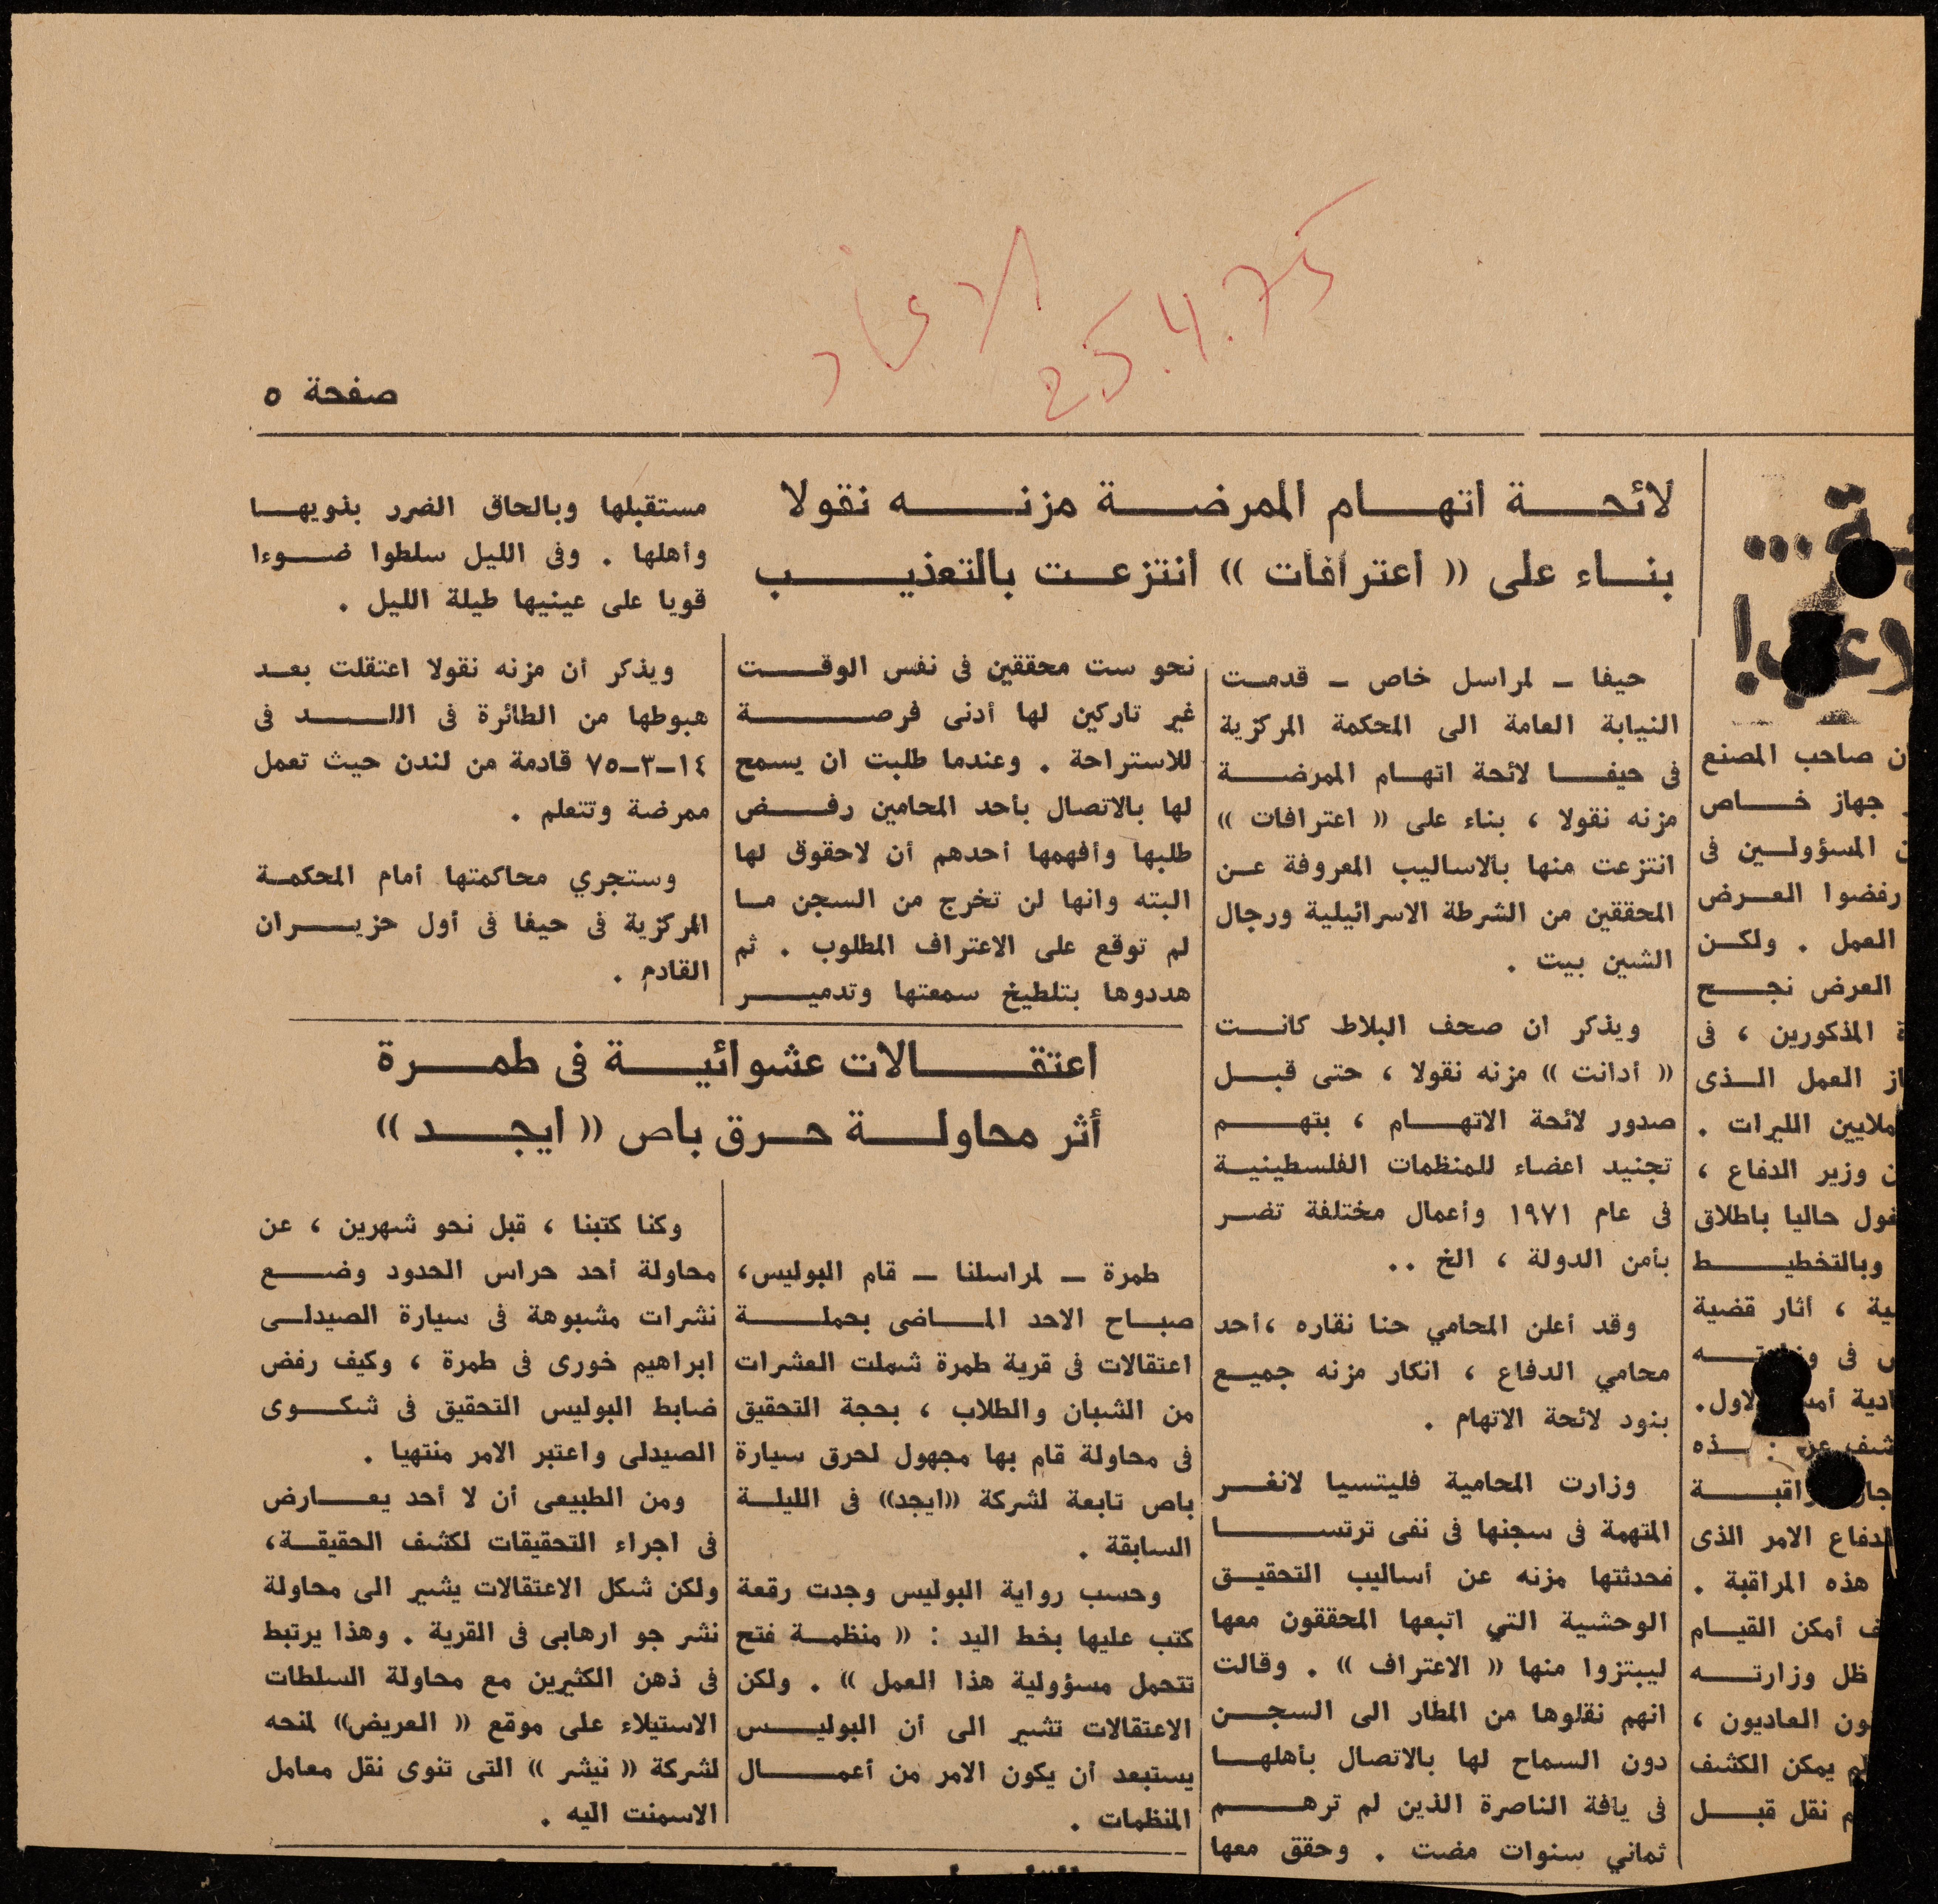 الاتحاد
25.4.75
صفحة ٥
لائحة اتهام الممرضة مزنه نقولا
بناء على (( أعترافات )) أنتزعت بالتعذيب
حيفا – لمراسل خاص – قدمت
النيابة العامة الى المحكمة المركزية
فى حيفا لائحة اتهام الممرضة
مزنه نقولا ، بناء على (( اعترافات ))
انتزعت منها بالاساليب المعروفة عن
المحققين من الشرطة الاسرائيلية ورجال
الشين بيت .
ويذكر ان صحف البلاط كانت
(( أدانت )) مزنه نقولا ، حتى قبل
صدور لائحة الاتهام ، بتهم
تجنيد اعضاء للمنظمات الفلسطينية
فى عام ١٩٧١ وأعمال مختلفة تضر
بأمن الدولة ، الخ ..
وقد أعلن المحامي حنا نقاره ،أحد
محامي الدفاع ، انكار مزنه جميع
بنود لائحة الاتهام .
وزارت المحامية فليتسيا لانغر
المتهمة فى سجنها فى نفى ترتسا
فحدثتها مزنه عن أساليب التحقيق
الوحشية التي اتبعها المحققون معها
ليبتزوا منها (( الاعتراف )) . وقالت
انهم نقلوها من المطار الى السجن
دون السماح لها بالاتصال بأهلها
فى يافة الناصرة الذين لم ترهم
ثماني سنوات مضت . وحقق معها
نحو ست محققين فى نفس الوقت
غير تاركين لها أدنى فرصة
للاستراحة . وعندما طلبت ان يسمح
لها بالاتصال بأحد المحامين رفض
طلبها وأفهمها أحدهم أن لاحقوق لها
البته وانها لن تخرج من السجن ما
لم توقع على الاعتراف المطلوب . ثم
هددوها بتلطيخ سمعتها وتدمير
مستقبلها وبالحاق الضرر بذويها
وأهلها . وفى الليل سلطوا ضوءا
قويا على عينيها طيلة الليل .
ويذكر أن مزنه نقولا اعتقلت بعد
هبوطها من الطائرة فى اللد فى
١٤–٣–٧٥ قادمة من لندن حيث تعمل
ممرضة وتتعلم .
وستجري محاكمتها أمام المحكمة
المركزية فى حيفا فى أول حزيران
القادم .
اعتقالات عشوائية فى طمرة
أثر محاولة حرق باص (( ايجد ))
طمرة – لمراسلنا – قام البوليس،
صباح الاحد الماضى بحملة
اعتقالات فى قرية طمرة شملت العشرات
من الشبان والطلاب ، بحجة التحقيق
فى محاولة قام بها مجهول لحرق سيارة
باص تابعة لشركة ((ايجد)) فى الليلة
السابقة .
وحسب رواية البوليس وجدت رقعة
كتب عليها بخط اليد : (( منظمة فتح
تتحمل مسؤولية هذا العمل )) . ولكن
الاعتقالات تشير الى أن البوليس
يستبعد أن يكون الامر من أعمال
المنظمات .
وكنا كتبنا ، قبل نحو شهرين ، عن
محاولة أحد حراس الحدود وضع
نشرات مشبوهة فى سيارة الصيدلى
ابراهيم خورى فى طمرة ، وكيف رفض
ضابط البوليس التحقيق فى شكوى
الصيدلى واعتبر الامر منتهيا .
ومن الطبيعى أن لا أحد يعارض
فى اجراء التحقيقات لكشف الحقيقة،
ولكن شكل الاعتقالات يشير الى محاولة
نشر جو ارهابى فى القرية . وهذا يرتبط
فى ذهن الكثيرين مع محاولة السلطات
الاستيلاء على موقع (( العريض)) لمنحه
لشركة (( نيشر )) التى تنوى نقل معامل
الاسمنت اليه .
صاحب المصنع
جهاز خاص
المسؤولين فى
رفضوا العرض
العمل . ولكن
العرض نجح
المذكورين ، فى
العمل الذى
ملايين الليرات .
وزير الدفاع ،
حاليا باطلاق
وبالتخطيط
، أثار قضية
فى
الاول.
الدفاع الامر الذى
هذه المراقبة .
أمكن القيام
ظل وزارته
العاديون ،
لم يمكن الكشف
نقل قبل